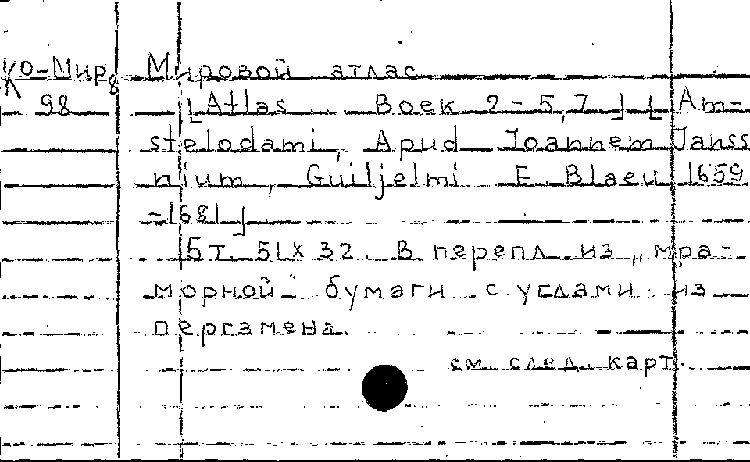 Ко-Мир8 Мировой атлас
98 [Atlas. Boek 2-5,7] [Am-
stelodami, Apud Joannem Janss
nium, Guiljelmi F. Blaeu 1659
-1681]
5т. 51х32. В перепл. из „мра-
морной" бумаги с углами из
пергамена.
см. след. карт.